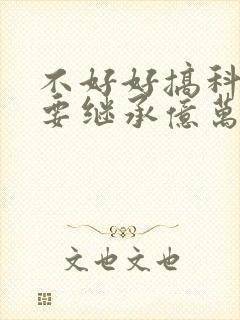 不好好搞科
要继承億萬
文也文也